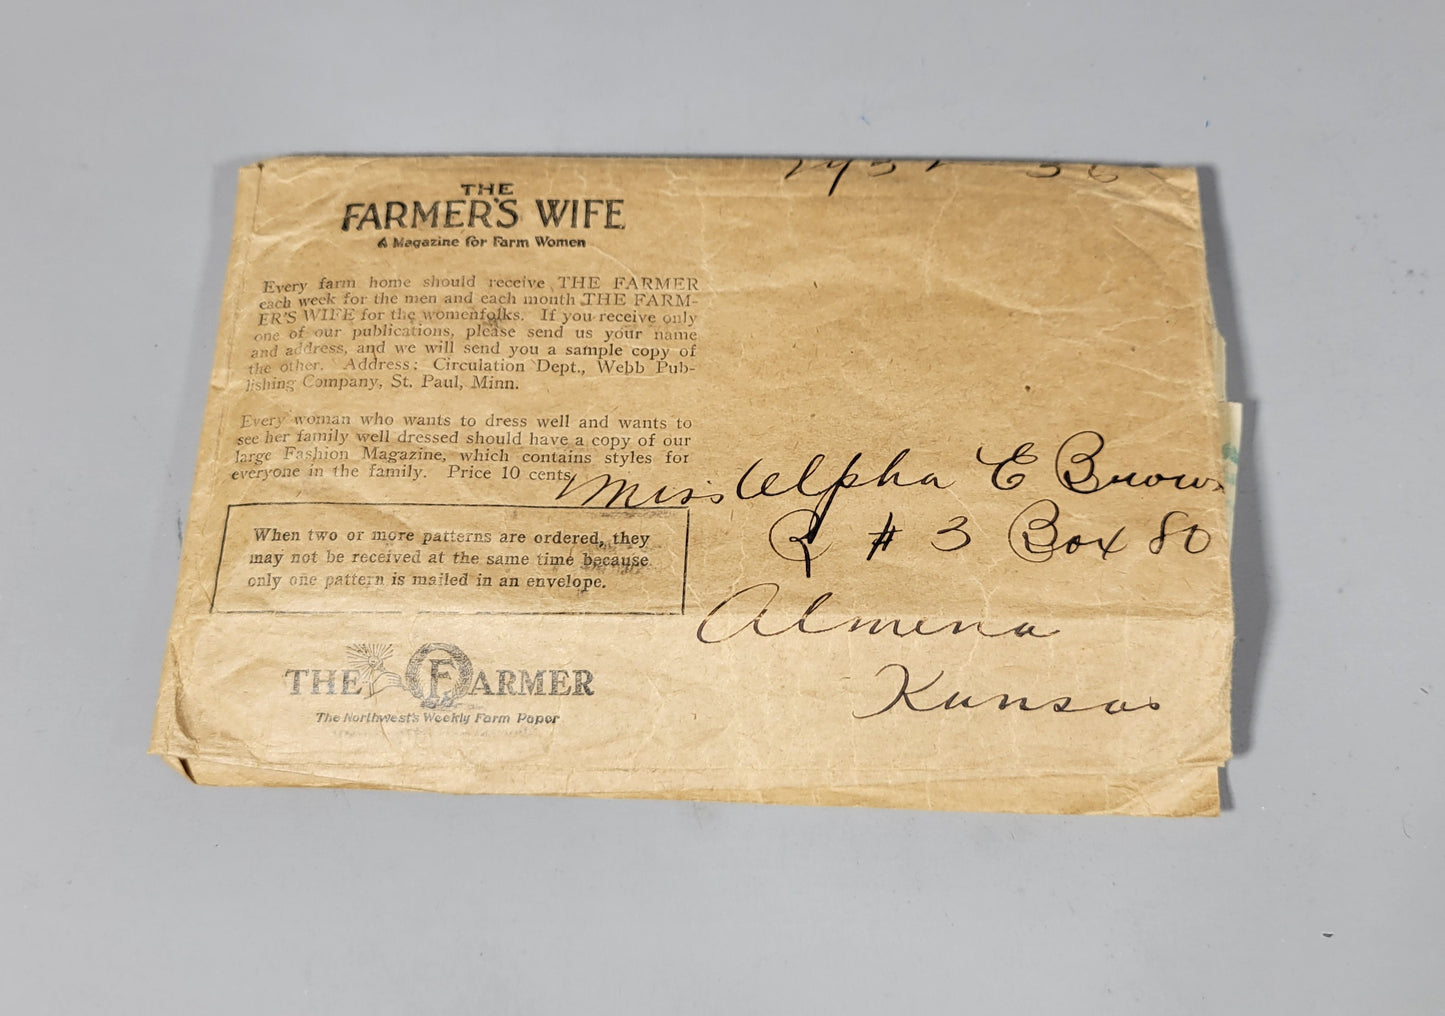 THE
FARMER'S WIFE
A Magazine for Farm Women
Every farm home should receive THE FARMER
each week for the men and each month THE FARM-
ER'S WIFE for the womenfolks. If you receive only
one of our publications, please send us your name
and address, and we will send you a sample copy of
the other. Address: Circulation Dept., Webb Pub-
lishing Company, St. Paul, Minn.
Every woman who wants to dress well and wants to
see her family well dressed should have a copy of our
large Fashion Magazine, which contains styles for
everyone in the family. Price 10 cents.
When two or more patterns are ordered, they
may not be received at the same time because
only one pattern is mailed in an envelope.
THE FARMER
The Northwest's Weekly Farm Paper
Miss Alpha E Brown
R # 3 Box 80
Almena
Kansas